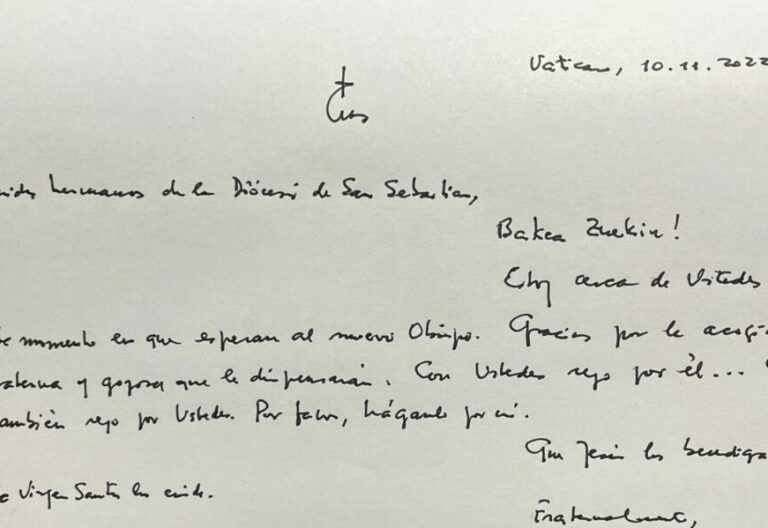 Vatican, 10.11.2022
hermanos de la Diócesis de San Sebastian,
Bakea Zuekin!
Estoy cerca de Ustedes
momento en que esperan al nuevo Obispo. Gracias por la
y gozosa que le dispensarán. Con Ustedes rezo por él...
también rezo por Ustedes. Por favor, háganlo por mí.
Que Jesús los bendiga
Virgen Santa los cuide.
Fraternalmente,